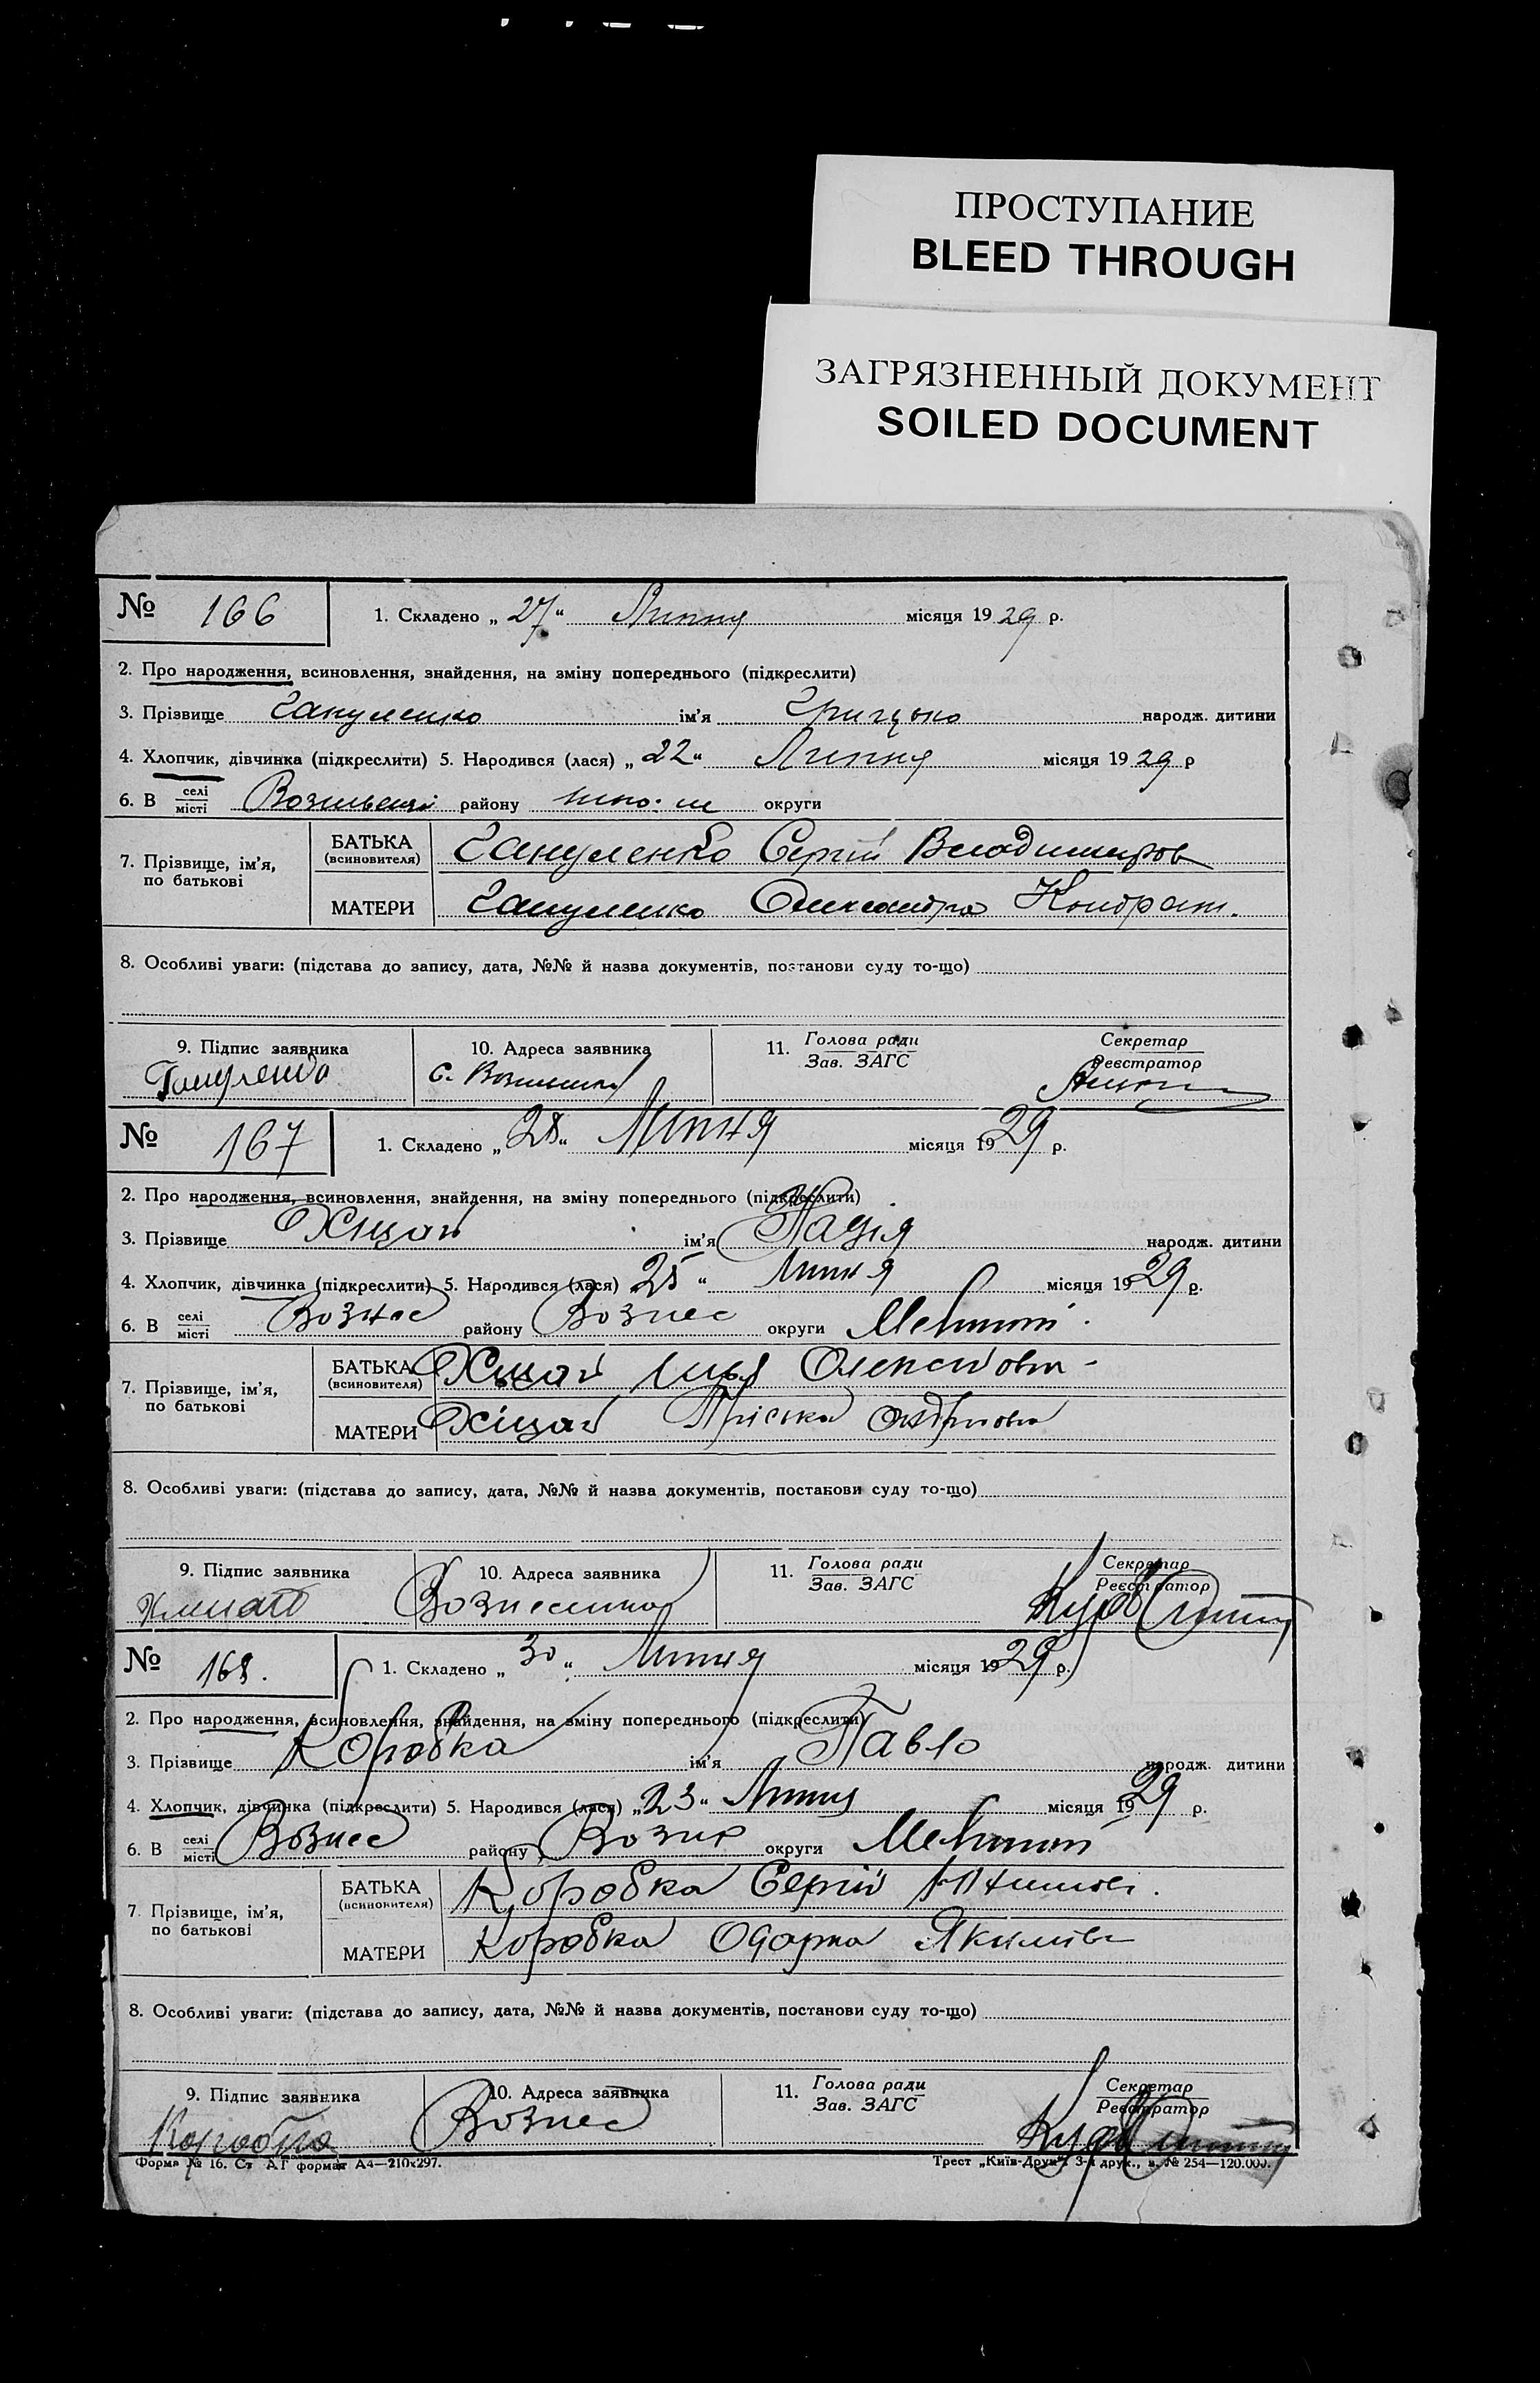 ПРОСТУПАНИЕ
BLEED THROUGH
ЗАГРЯЗНЕННЫЙ ДОКУМЕНТ
SOILED DOCUMENT
№ 166 1. Складено „ 27 “ Липня місяця 1929 р.
2. Про народження, всиновлення, знайдення, на зміну попереднього (підкреслити)
3. Прізвище Гануленко ім’я Грицько народж. дитини
4. Хлопчик, дівчинка (підкреслити) 5. Народився (лася) „ 22 “ Липня місяця 1929 р
6. В селі місті району округи
7. Прізвище, ім’я, по батькові
БАТЬКА (всиновителя) Гануленко Сергій Владимиров
МАТЕРИ Гануленко Олександра Кондрат.
8. Особливі уваги: (підстава до запису, дата, №№ й назва документів, постанови суду то-що)
9. Підпис заявника 10. Адреса заявника 11. Голова ради Зав. ЗАГС Секретар Реєстратор
Гануленко с.
№ 167 1. Складено „ 28 “ Липня місяця 1929 р.
2. Про народження, всиновлення, знайдення, на зміну попереднього (підкреслити)
3. Прізвище ім’я народж. дитини
4. Хлопчик, дівчинка (підкреслити) 5. Народився (лася) 25 “ Липня місяця 1929 р.
6. В селі місті Вознес району Вознес округи Мелітоп
7. Прізвище, ім’я, по батькові
БАТЬКА (всиновителя) Ілья
МАТЕРИ Пріська
8. Особливі уваги: (підстава до запису, дата, №№ й назва документів, постанови суду то-що)
9. Підпис заявника 10. Адреса заявника 11. Голова ради Зав. ЗАГС Секретар Реєстратор
№ 168. 1. Складено „ 30 “ Липня місяця 1929 р.
2. Про народження, всиновлення, знайдення, на зміну попереднього (підкреслити)
3. Прізвище Коробка ім’я Павло народж. дитини
4. Хлопчик, дівчинка (підкреслити) 5. Народився (лася) „ 23 “ Липня місяця 1929 р.
6. В селі місті Вознес району Вознес округи Мелітоп
7. Прізвище, ім’я, по батькові
БАТЬКА (всиновителя) Коробка Сергій
МАТЕРИ Коробка Одарка Якимівн
8. Особливі уваги: (підстава до запису, дата, №№ й назва документів, постанови суду то-що)
9. Підпис заявника 10. Адреса заявника 11. Голова ради Зав. ЗАГС Секретар Реєстратор
Коробка Вознес
Форма № 16. Ст АГ формат А4—210х297. Трест „Київ-Друк“ 3-я друк., з. № 254—120.000.